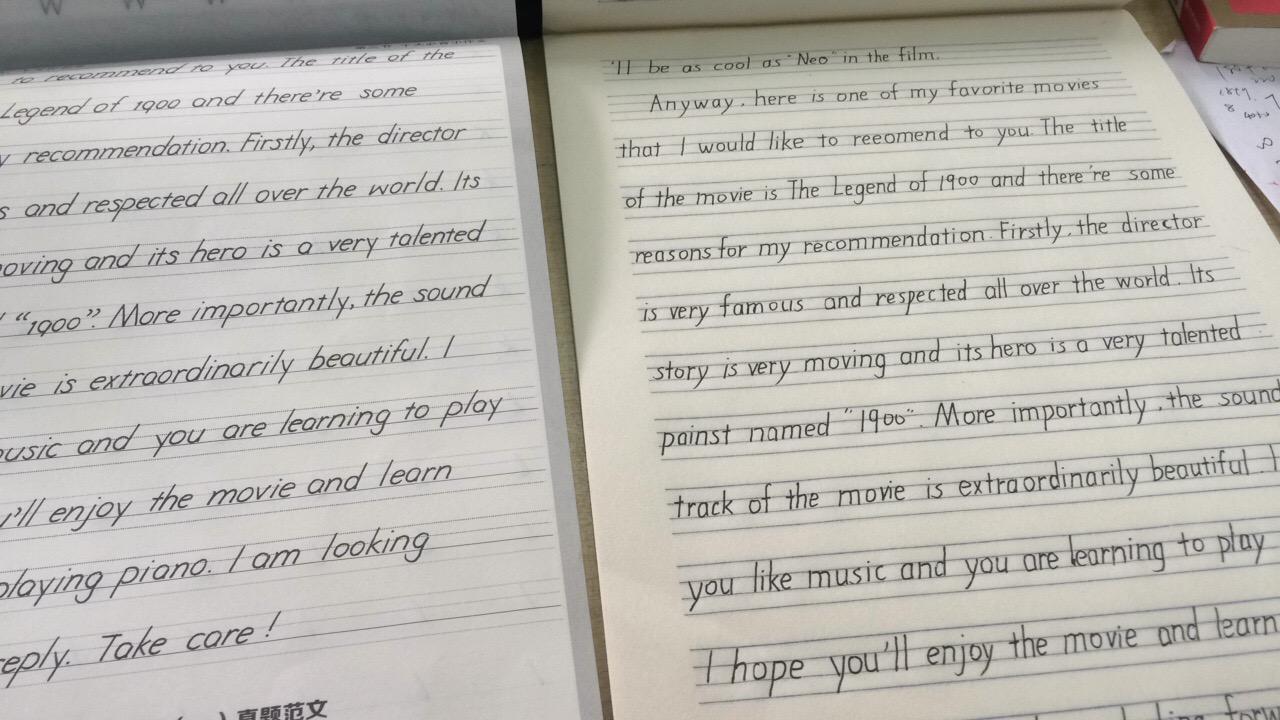 to recommend to you. The title of the
Legend of 1900 and there're some
recommendation. Firstly, the director
and respected all over the world. Its
and its hero is a very talented
"1900". More importantly, the sound
is extraordinarily beautiful. I
and you are learning to play
enjoy the movie and learn
playing piano. I am looking
reply. Take care!
真题范文
'll be as cool as "Neo" in the film.
Anyway, here is one of my favorite movies
that I would like to reeomend to you. The title
of the movie is The Legend of 1900 and there're some
reasons for my recommendation. Firstly, the director
is very famous and respected all over the world. Its
story is very moving and its hero is a very talented
painst named "1900". More importantly, the sound
track of the movie is extraordinarily beautiful. I
you like music and you are learning to play
I hope you'll enjoy the movie and learn